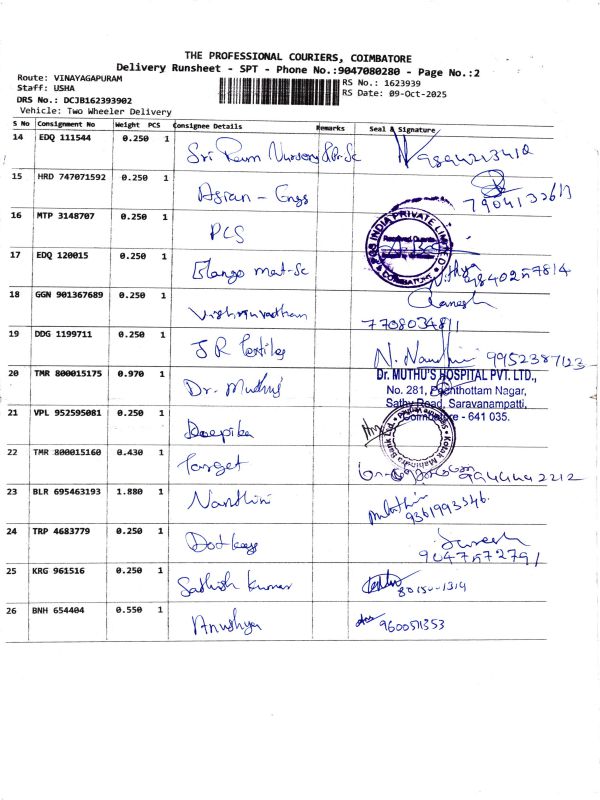 THE PROFESSIONAL COURIERS, COIMBATORE
Delivery Runsheet - SPT - Phone No.:9047080280 - Page No.:2
Route: VINAYAGAPURAM
Staff: USHA
DRS No.: DCJB162393902
Vehicle: Two Wheeler Delivery
RS No.: 1623939
RS Date: 09-Oct-2025
S No Consignment No Weight PCS Consignee Details Remarks Seal & Signature
14 EDQ 111544 0.250 1 Sri Ram Nursery
15 HRD 747071592 .250 1 Asian - Engs
16 MTP 3148707 0.250 1 PCS
PCS INDIA PRIVATE LIMITED
COIMBATORE
17 EDQ 120015 0.250 1 Elango mat-Sc 9840257814
18 GGN 901367689 0.250 1 Ganesh
7708034811
19 DDG 1199711 0.250 1 J R Textiles N. Nandhini
20 TMR 800015175 0.970 1 Dr. Muthus
Dr. MUTHU'S HOSPITAL PVT. LTD.,
No. 281, Poonthottam Nagar,
Sathy Road, Saravanampatti,
Coimbatore - 641 035.
21 VPL 952595081 0.250 1 Deepika
Kotak Mahindra Bank Ltd.
22 TMR 800015160 0.430 1 Target 9944442212
23 BLR 695463193 1.880 1 Nandhini
9361993546
24 TRP 4683779 0.250 1 Dot keys Suresh
9047572791
25 KRG 961516 0.250 1 Sathish kumar 80150-1314
26 BNH 654404 0.550 1 Anushya 9600511353